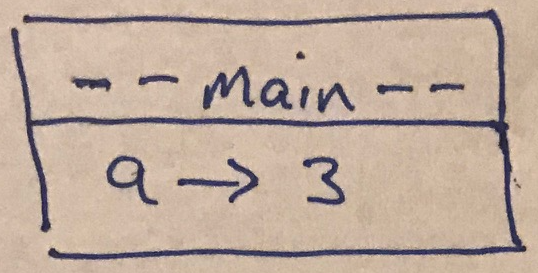 -- main --
a → 3